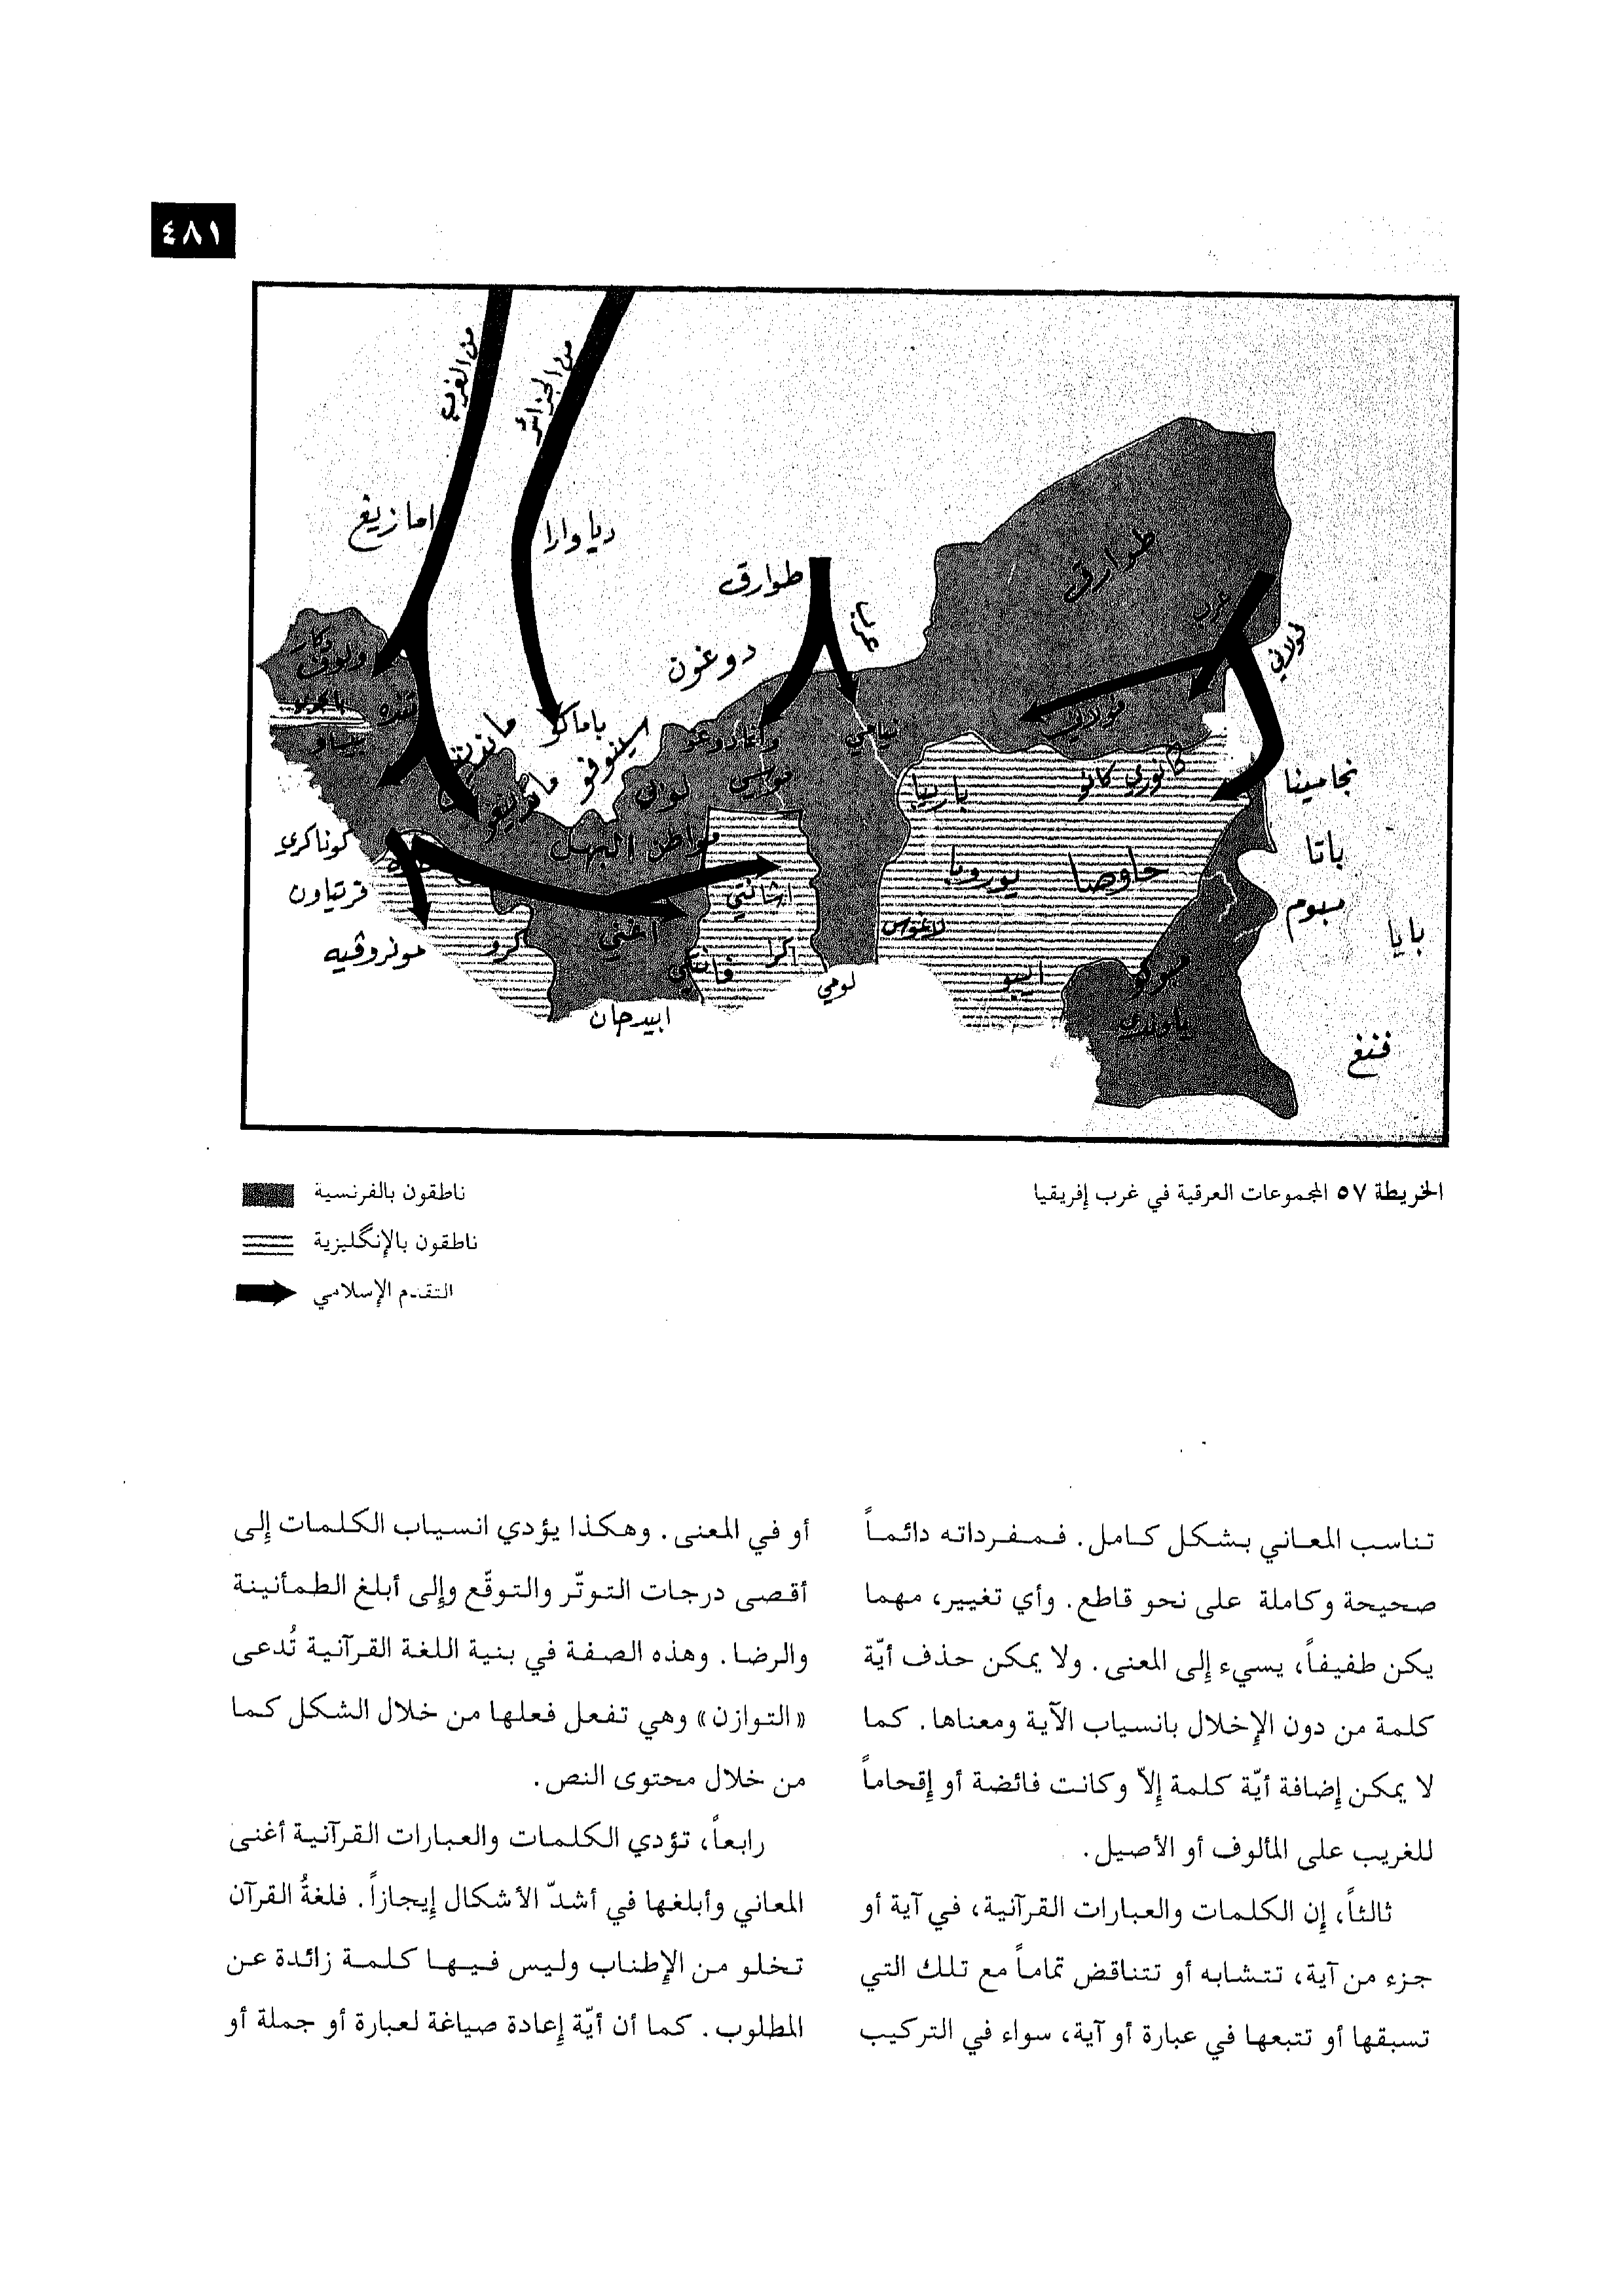 ٤٨١
من المغرب
من الجزائر
امازيغ
دياوارا
طوارق
طوارق
عرب
عرب
فولاني
دوغون
ولوف
باماكو
سينوفو
نيامي
فولاني
كانوري كانو
نجامينا
باتا
مبوم
بايا
فنغ
كوناكري
فريتاون
مونروفيه
كرو
اغني
اشانتي
اكرا
فانتي
لومي
لاغوس
يوروبا
حاوصا
ايبو
ابيدجان
ياوندي
باريبا
لوبي
الخريطة ٥٧ المجموعات العرقية في غرب إفريقيا
ناطقون بالفرنسية
ناطقون بالإنگليزية
التقدم الإسلامي
تناسب المعاني بشكل كامل. فمفرداته دائماً
صحيحة وكاملة على نحو قاطع. وأي تغيير، مهما
يكن طفيفاً، يسيء إلى المعنى. ولا يمكن حذف أيّة
كلمة من دون الإخلال بانسياب الآية ومعناها. كما
لا يمكن إضافة أيّة كلمة إلاّ وكانت فائضة أو إقحاماً
للغريب على المألوف أو الأصيل.
ثالثاً، إن الكلمات والعبارات القرآنية، في آية أو
جزء من آية، تتشابه أو تتناقض تماماً مع تلك التي
تسبقها أو تتبعها في عبارة أو آية، سواء في التركيب
أو في المعنى. وهكذا يؤدي انسياب الكلمات إلى
أقصى درجات التوتّر والتوقّع وإلى أبلغ الطمأنينة
والرضا. وهذه الصفة في بنية اللغة القرآنية تُدعى
«التوازن» وهي تفعل فعلها من خلال الشكل كما
من خلال محتوى النص.
رابعاً، تؤدي الكلمات والعبارات القرآنية أغنى
المعاني وأبلغها في أشدّ الأشكال إيجازاً. فلغةُ القرآن
تخلو من الإطناب وليس فيها كلمة زائدة عن
المطلوب. كما أن أيّة إعادة صياغة لعبارة أو جملة أو